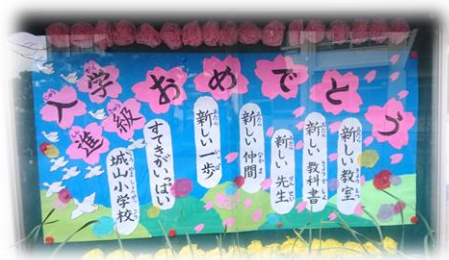 入学
進級
おめでとう
新しい教室
新しい教科書
新しい先生
新しい仲間
新しい一歩
すてきがいっぱい
城山小学校